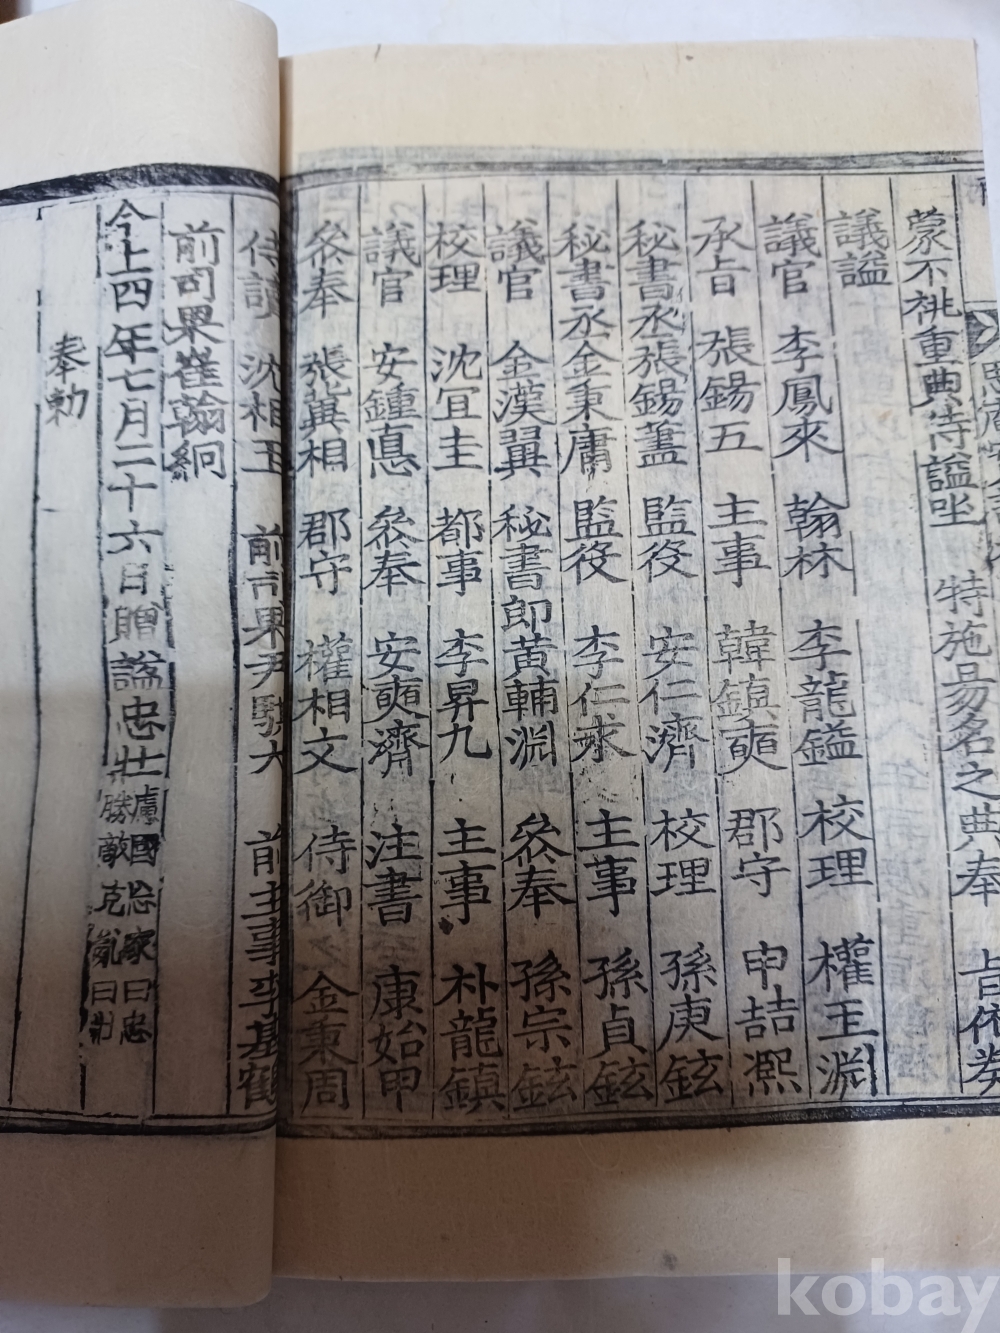 蒙不祧重典待謚坐 特施易名之典奉 占依奏
議謚
議官 李鳳來 翰林 李龍鎰 校理 權玉淵
承旨 張錫五 主事 韓鎮奭 郡守 申喆凞
秘書丞 張錫藎 監役 安仁濟 校理 孫庚鉉
秘書丞 金秉庸 監役 李仁求 主事 孫貞鉉
議官 金漢翼 秘書郎 黃輔淵 叅奉 孫宗鉉
校理 沈宜圭 都事 李昇九 主事 朴龍鎮
議官 安鍾悳 叅奉 安奭濟 注書 康始甲
叅奉 張冀相 郡守 權相文 侍御 金秉周
侍讀 沈相玉 前司果尹騏大 前主事李基鶴
前司果崔翰絅
今上四年七月二十六日贈諡忠壯 慮國忘家曰忠 勝敵克亂曰壯
奉勅
kobay